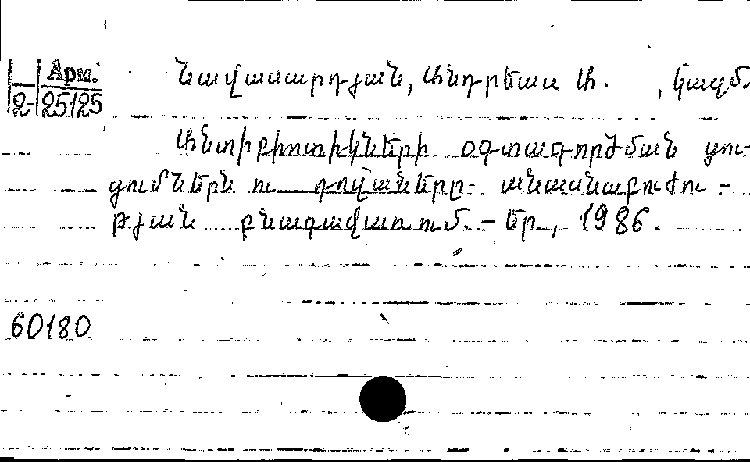 Арм.
2-25125
Նավասարդյան, Անդրեաս Ա. , կազմ.
Անտիբիոտիկների օգտագործման ցու-
ցումներն ու դոզաները անասնաբուժու-
թյան բնագավառում. - Եր., 1986.
60180